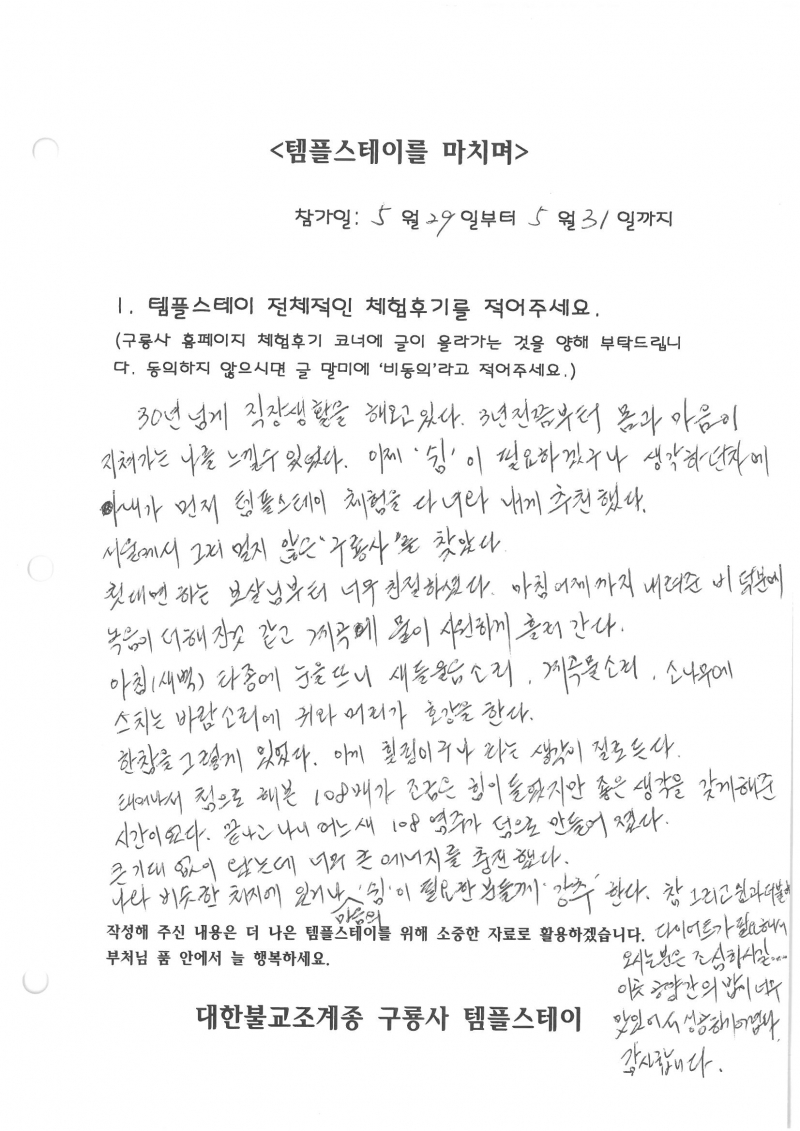 <템플스테이를 마치며>
참가일: 5 월 29 일부터 5 월 31 일까지
1. 템플스테이 전체적인 체험후기를 적어주세요.
(구룡사 홈페이지 체험후기 코너에 글이 올라가는 것을 양해 부탁드립니
다. 동의하지 않으시면 글 말미에 '비동의'라고 적어주세요.)
30년 넘게 직장생활을 해오고 있다. 3년전쯤부터 몸과 마음이
지쳐가는 나를 느낄수 있었다. 이제 '쉼'이 필요하겠구나 생각하던차에
아내가 먼저 템플스테이 체험을 다녀와 내게 추천했다.
서울에서 그리 멀지 않은 '구룡사'를 찾았다.
첫대면 하는 보살님부터 너무 친절하셨다. 마침 어제까지 내려준 비 덕분에
녹음이 더해진것 같고 계곡에 물이 시원하게 흘러 간다.
아침(새벽) 타종에 눈을 뜨니 새들울음소리, 계곡물소리, 소나무에
스치는 바람소리에 귀와 머리가 호강을 한다.
한참을 그렇게 있었다. 이게 힐링이구나 라는 생각이 절로 든다.
태어나서 첨으로 해본 108배가 조금은 힘이 들었지만 좋은 생각을 갖게해준
시간이었다. 끝나고 나니 어느새 108 염주가 덤으로 만들어 졌다.
큰 기대 없이 왔는데 너무 큰 에너지를 충전했다.
나와 비슷한 처지에 있거나 마음의 '쉼'이 필요한 분들께 '강추' 한다. 참 그리고 쉼과 더불어
작성해 주신 내용은 더 나은 템플스테이를 위해 소중한 자료로 활용하겠습니다.
부처님 품 안에서 늘 행복하세요.
다이어트가 필요해서
오시는분은 조심하시길....
이곳 공양간의 밥이 너무
맛있어서 성공하기 어렵다.
감사합니다.
대한불교조계종 구룡사 템플스테이